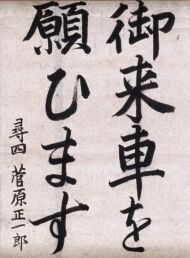 御来車を
願ひます
尋四 菅原正一郎